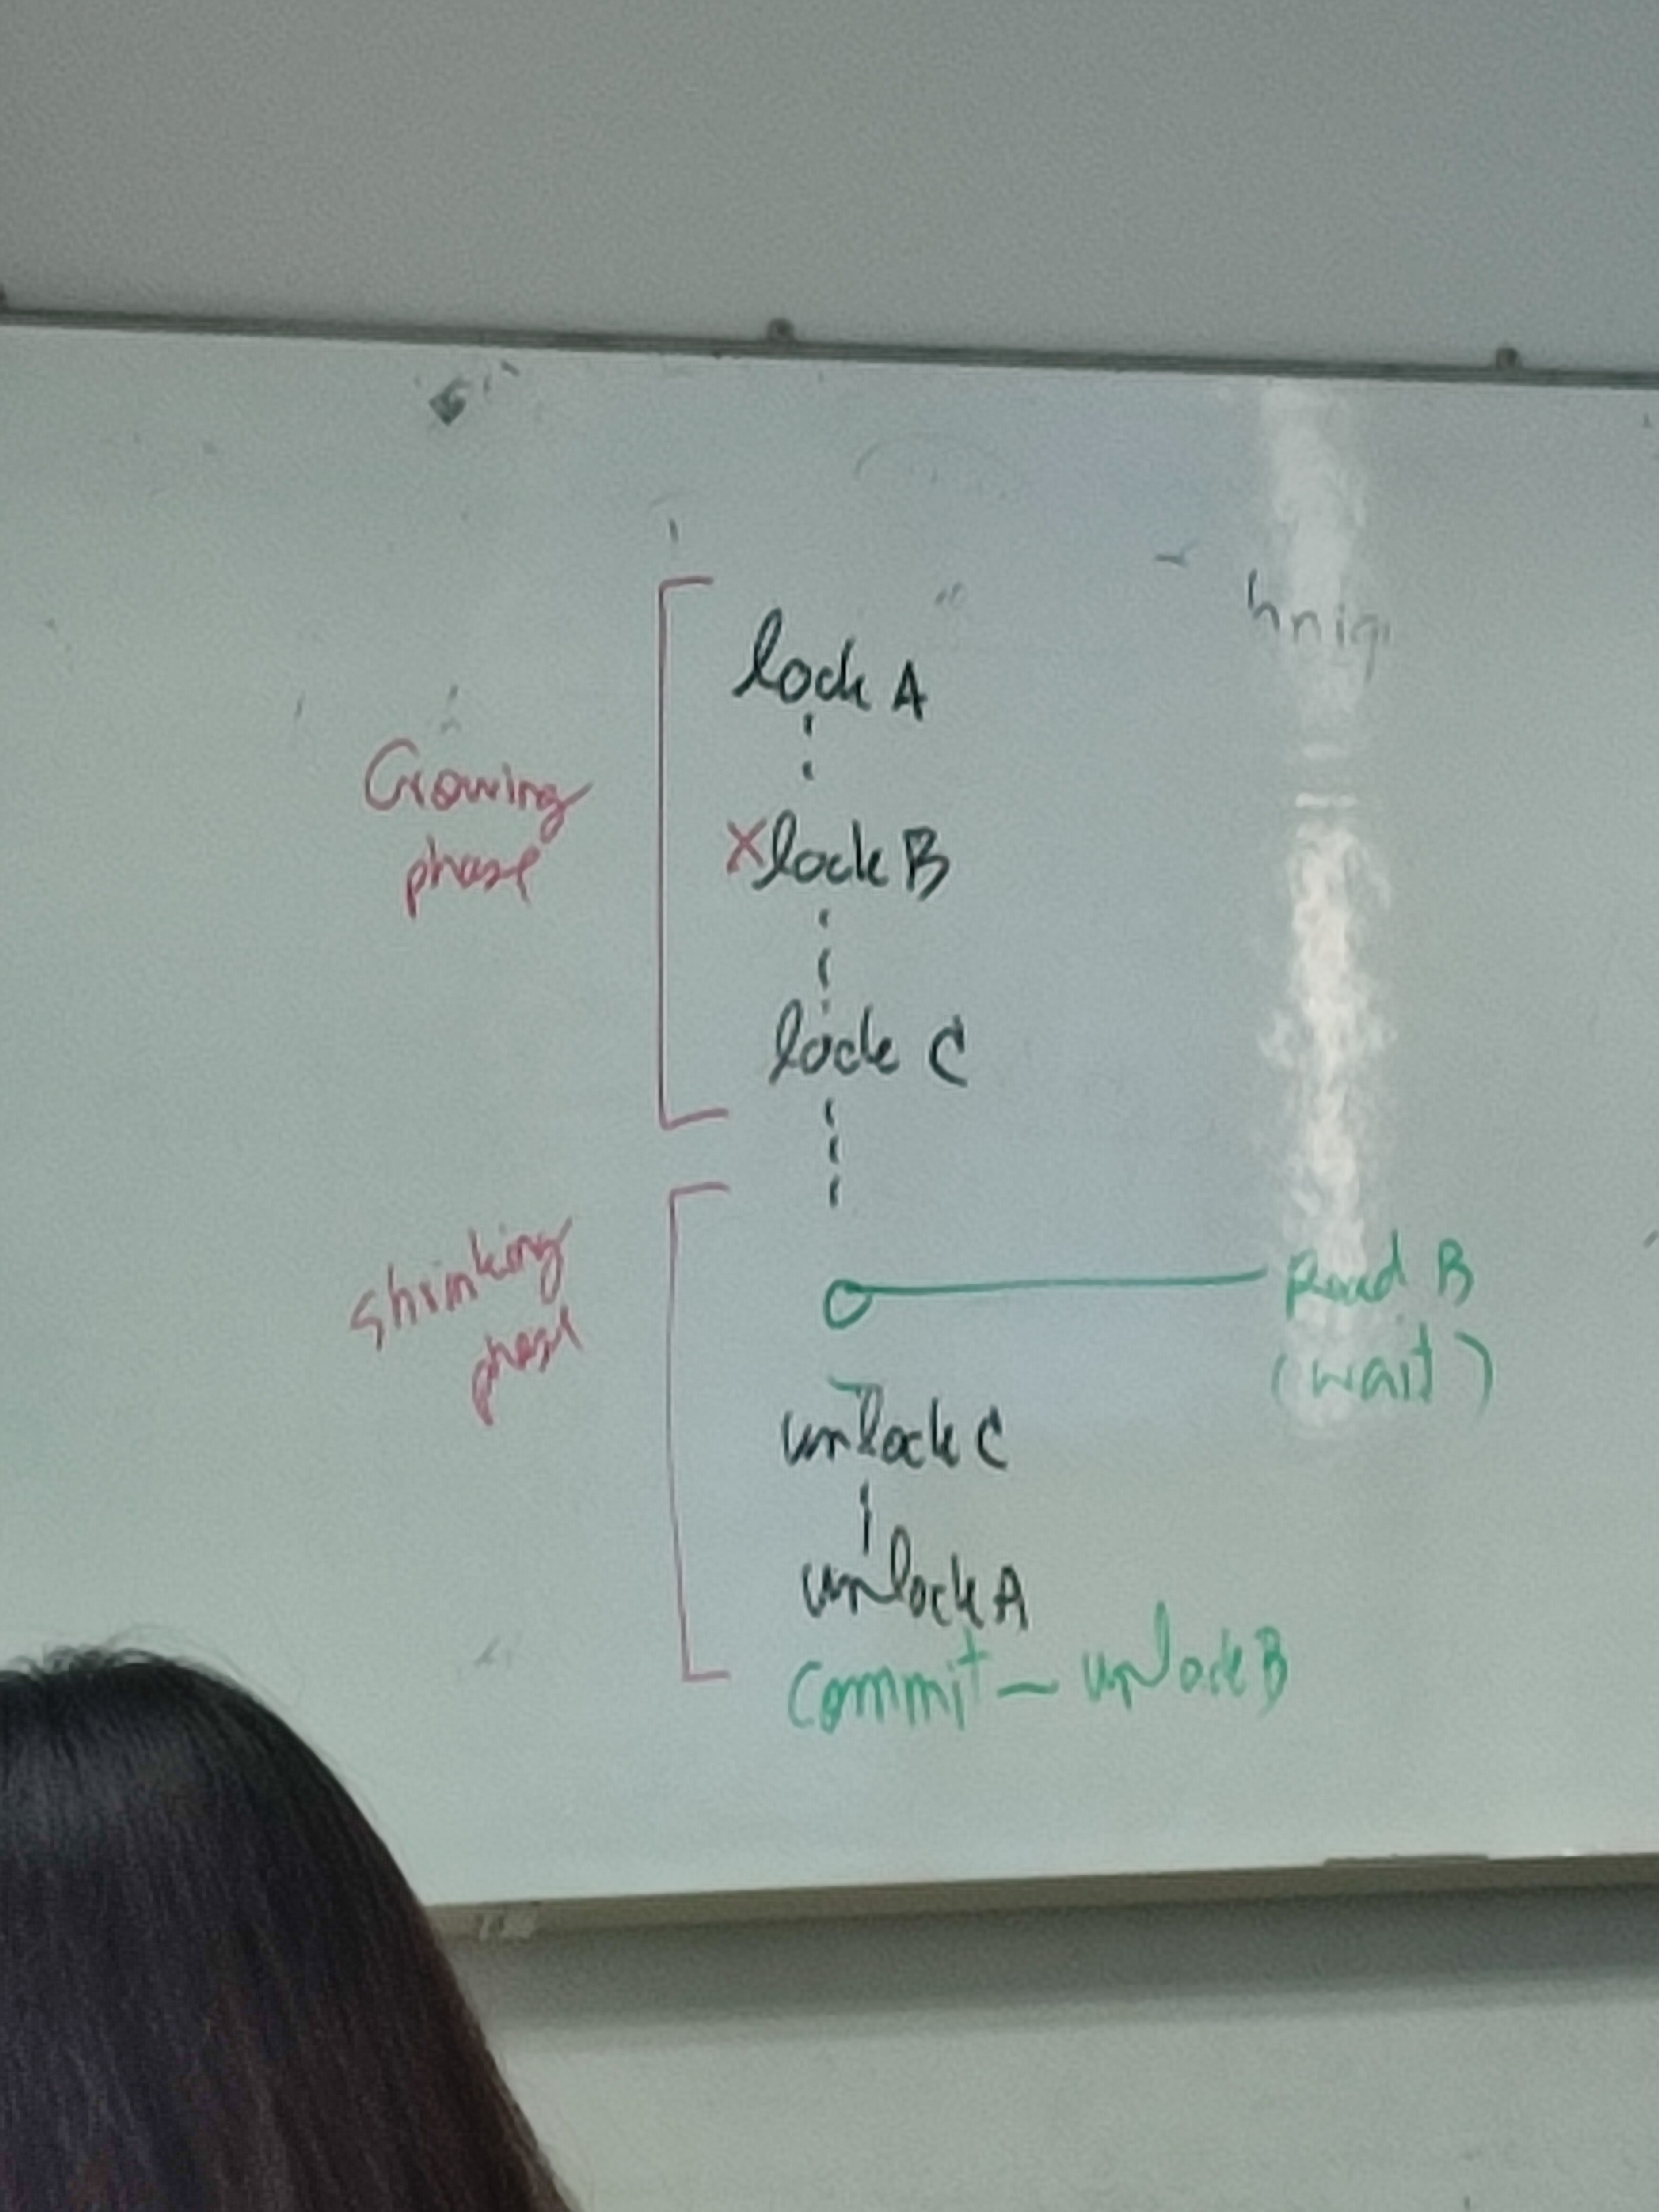 lock A
Growing
phase
Xlock B
lock C
Shrinking
phase
Read B
(wait)
unlock C
unlock A
Commit - unlock B